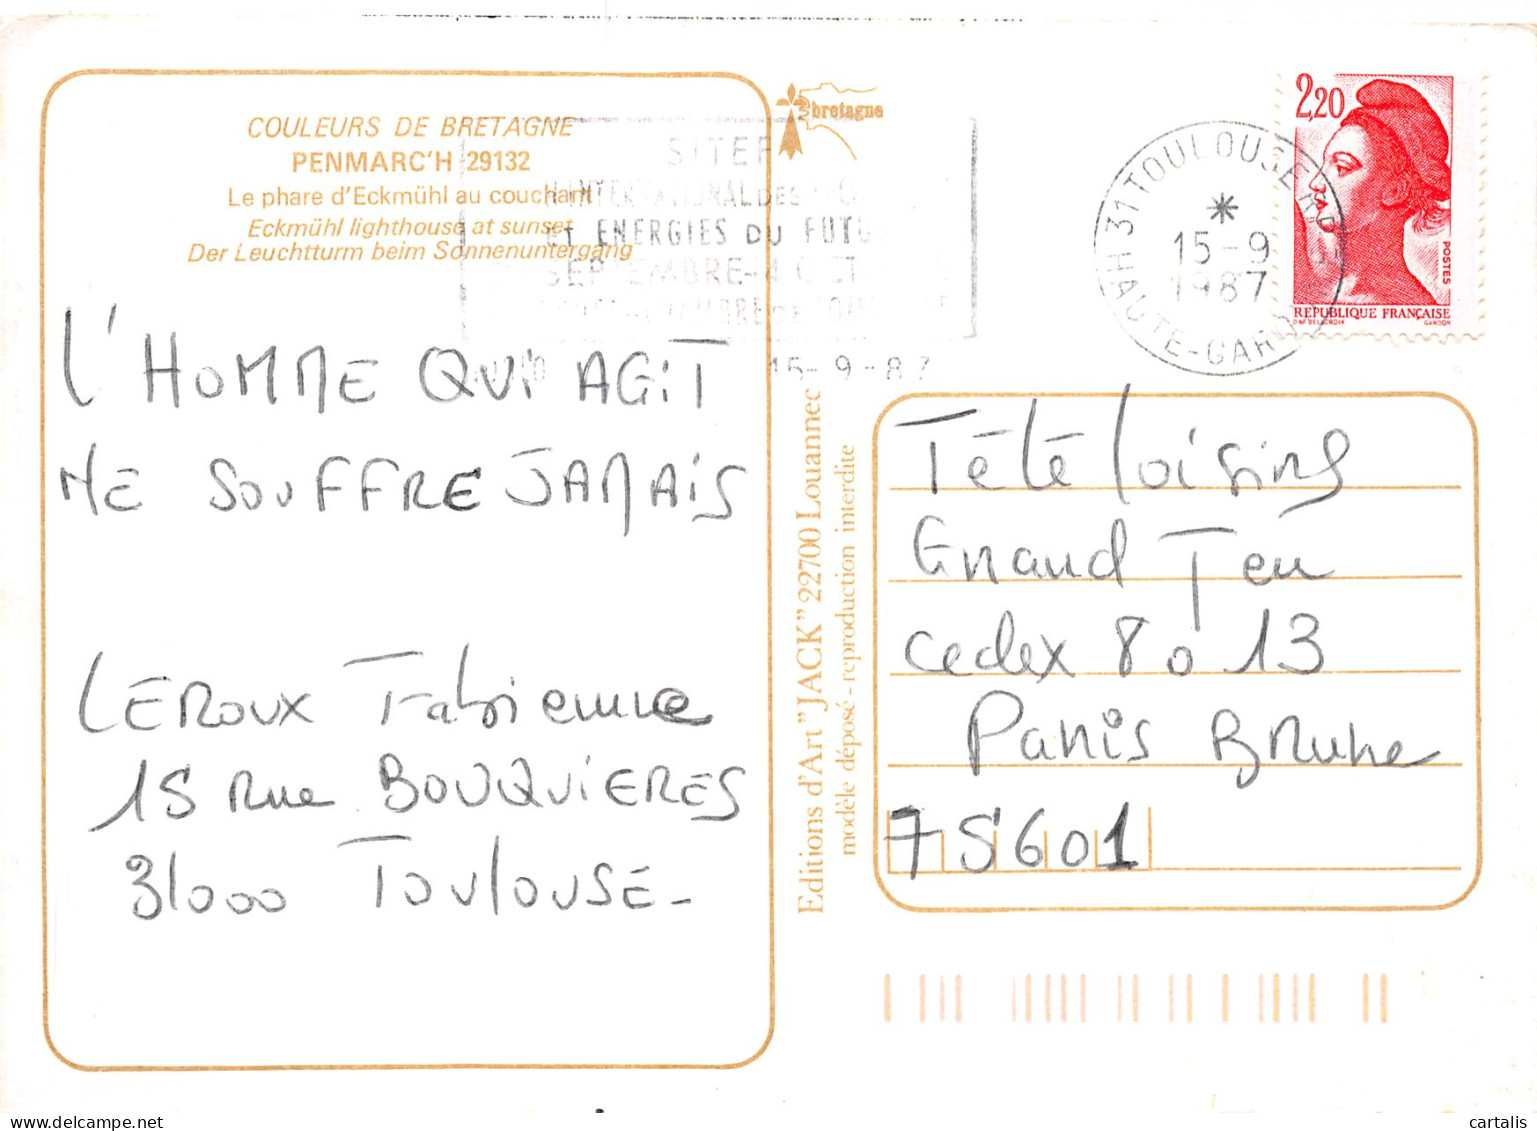 COULEURS DE BRETAGNE
PENMARC'H 29132
Le phare d'Eckmühl au couchant
Eckmühl lighthouse at sunset
Der Leuchtturm beim Sonnenuntergang
L'HOMME QUI AGIT
NE SOUFFRE JAMAIS
LEROUX Fabienne
15 Rue BOUQUIERES
31000 TOULOUSE-
bretagne
SITEF
INTERNATIONAL DES
ET ENERGIES DU FUTU
SEPTEMBRE-4 OCT
15-9-87
Editions d'Art "JACK" 22700 Louannec
modèle déposé - reproduction interdite
31 TOULOUSE
15-9
1987
HAUTE-GAR
2,20
POSTES
REPUBLIQUE FRANÇAISE
D'AP. DELACROIX GANDON
Télé loisirs
Grand Jeu
cedex 80 13
Paris Brune
75601
cartalis